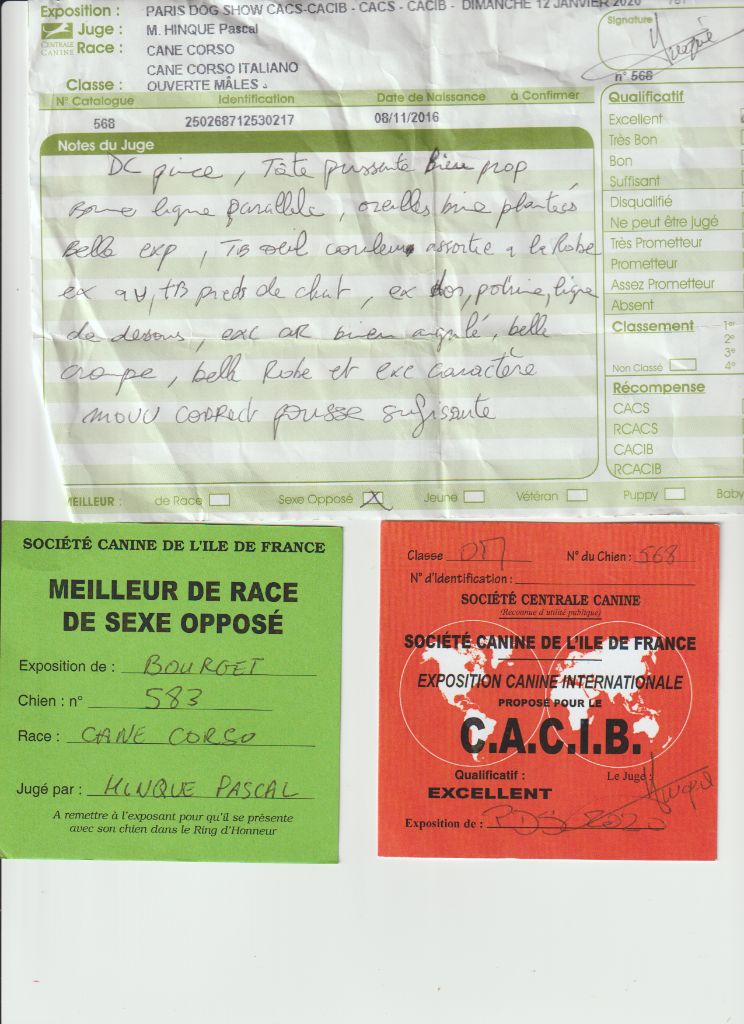 Exposition : PARIS DOG SHOW CACS-CACIB - CACS - CACIB - DIMANCHE 12 JANVIER 2020
CENTRALE CANINE
Juge : M. HINQUE Pascal
Race : CANE CORSO
CANE CORSO ITALIANO
Classe : OUVERTE MÂLES
Signature
n° 568
N° Catalogue Identification Date de Naissance à Confirmer
568 250268712530217 08/11/2016
Notes du Juge
DC pince, Tête puissante Bien prop
Bonne ligne parallèle, oreilles bien plantées
Belle exp, TB oeil couleur assortie a la Robe
ex av, TB pieds de chat, ex dos, poitrine, ligne
de dessous, exc AR bien angulé, belle
croupe, belle Robe et exc caractère
mouv correct pousse suffisante
Qualificatif
Excellent
Très Bon
Bon
Suffisant
Disqualifié
Ne peut être jugé
Très Prometteur
Prometteur
Assez Prometteur
Absent
Classement 1er
2e
3e
Non Classé 4e
Récompense
CACS
RCACS
CACIB
RCACIB
MEILLEUR : de Race Sexe Opposé X Jeune Vétéran Puppy Baby
SOCIÉTÉ CANINE DE L'ILE DE FRANCE
MEILLEUR DE RACE
DE SEXE OPPOSÉ
Exposition de : BOURGET
Chien : n° 583
Race : CANE CORSO
Jugé par : HINQUE PASCAL
A remettre à l'exposant pour qu'il se présente
avec son chien dans le Ring d'Honneur
Classe OM N° du Chien : 568
N° d'Identification :
SOCIÉTÉ CENTRALE CANINE
(Reconnue d'utilité publique)
SOCIÉTÉ CANINE DE L'ILE DE FRANCE
EXPOSITION CANINE INTERNATIONALE
PROPOSÉ POUR LE
C.A.C.I.B.
Qualificatif : Le Juge :
EXCELLENT Hinque
Exposition de : PDS 2020